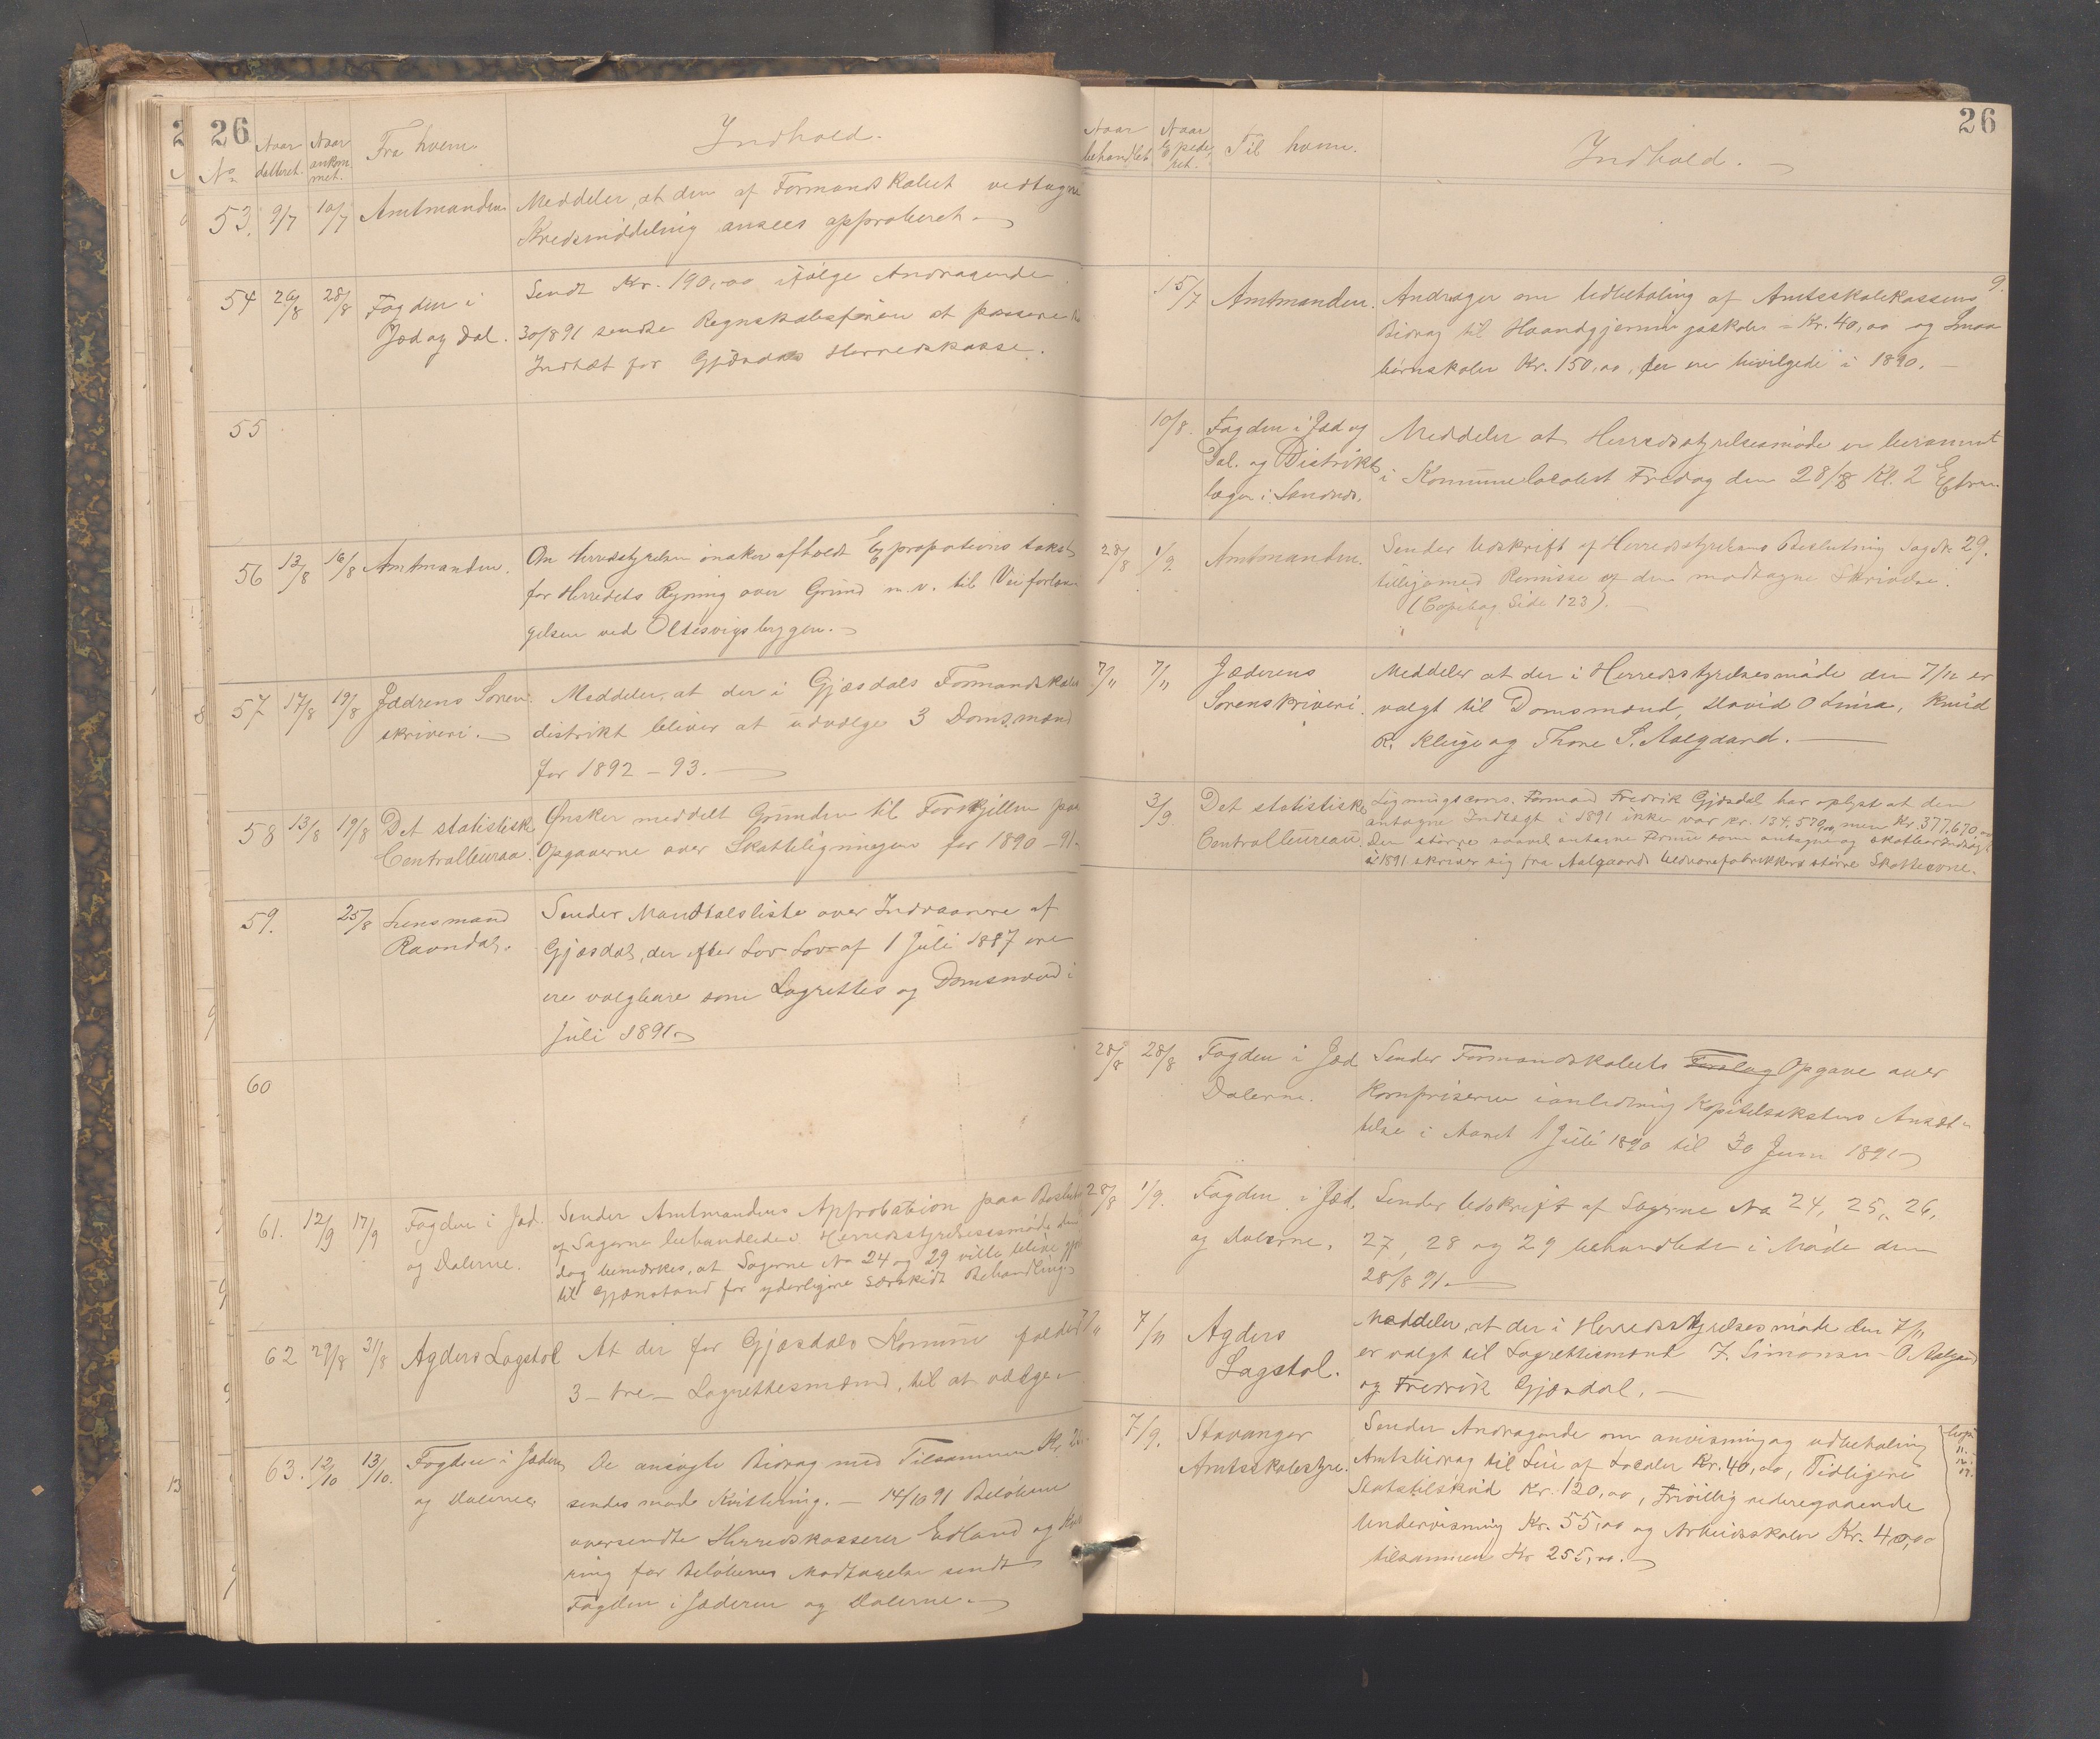 26
No
Naar datteret.
Naar ankommet.
Fra hvem.
Indhold.
53. 9/7 10/7 Amtmanden
Meddeler, at den af Formandskabet vedtagne
Kredsinddeling ansees approberet.
54 26/8 28/8 Fogden i
Jæd og Dal.
Sendt Kr. 190,00 ifølge Andragende
30/8 91 sendte Regnskabsføreren at passere
Indtæt for Gjæsdals Herredskasse.
55
56 13/8 16/8 Amtmanden.
Om Herredstyrelsen ønsker afholdt Expropriations takst
for Herredets Regning over Grund m.v. til Veiforlæn
gelsen ved Oltesvigsbryggen.
57 17/8 19/8 Jædrens Soren
skriveri.
Meddeler, at der i Gjæsdals Formandskabs
distrikt bliver at udvælge 3 Domsmænd
for 1892 – 93.
58 13/8 19/8 Det statistiske
Centralbureau.
Ønsker meddelt Grunden til Forskjellen paa
Opgaverne over Skatteligningen for 1890 – 91.
59. 25/8 Lensmand
Ravndal.
Sender Mandtalsliste over Indvaanere af
Gjæsdal, der efter Lov Lov af 1 Juli 1887 ere
ere valgbare som Lagrettes og Domsmænd i
Juli 1891.
60
61. 12/9 17/9 Fogden i Jæd.
og Dalerne.
Sender Amtmandens Approbation paa Beslutn
af Sagerne behandlede i Herredsstyrelsesmøde den
dog bemærkes, at Sagerne No 24 og 29 ville blive gjo
til Gjænstand for yderligere særskidt Behandling
62 29/8 31/8 Agders Lagstol
At der for Gjæsdals Komune falder
3 – tre – Lagrettesmænd, til at vælge.
63. 12/10 13/10. Fogden i Jæderen
og Dalerne
De ansøgte Bidrag med Tilsammen Kr.
sendes mod Kvittering. – 14/10 91 Beløbene
oversendte Herredskasserer Edland og Kvit
ring for Beløbenes Modtagelse sendt
Fogden i Jæderen og Dalerne.
26
Naar behandlet.
Naar Expederet.
Til hvem.
Indhold.
15/7 Amtmanden.
Andrager om Udbetaling af Amtsskolekassens 9.
Bidrag til Haandgjerningsskoler = Kr. 40,00 og Smaa
børnskoler Kr. 150,00, der ere bevilgede i 1890.
10/8. Fogden i Jæd og
Dal. og Distrikts
læger i Sandnæs.
Meddeler at Herredsstyrelsesmøde er berammet
i Komunelocalet Fredag den 28/8 Kl. 2 Efterm.
28/8 1/9. Amtmanden.
Sender Udskrift af Herredsstyrelsens Beslutning Sag No 29.
tilligemed Remisse af den modtagne Skrivelse.
(Copibog Side 123).
7/11 7/11 Jæderens
Sorenskriveri.
Meddeler at der i Herredsstyrelsesmøde den 7/11 er
valgt til Domsmænd, David O Lima, Knud
R. Kluge og Thore S. Aalgaard.
3/9. Det statistiske
Centralbureau.
Ligningscoms. Formand Fredrik Gjæsdal har oplyst at den
antagne Indtægt i 1891 ikke var Kr. 134,570,00 men Kr. 377,670,00
Den større saavel antagne Formue som antagne og skatbar Indtægt
i 1891 skriver sig fra Aalgaards Uldvarefabrikkers større Skatteevne.
28/8 28/8 Fogden i Jæd
Dalerne.
Sender Formandskabets Forslag Opgave over
Kornpriserne i anledning Kapitelsakstens Ansæt-
telse i Aaret 1 Juli 1890 til 30 Juni 1891
28/8 1/9. Fogden i Jæd.
og Dalerne.
Sender Udskrift af Sagerne No 24, 25, 26,
27, 28 og 29 behandlede i Møde den
28/8 91.
7/11 7/11 Agders
Lagstol.
Meddeler, at der i Herredsstyrelsesmøde den 7/11
er valgt til Lagrettesmænd F. Simonsen – O. Aalgaard
og Fredrik Gjæsdal.
7/9. Stavanger
Amtsskolestyre.
Sender Andragende om anvisning og udbetaling
Amtsbidrag til Leie af Localer Kr. 40,00, Tidligere
Statstilskud Kr. 120,00, Frivillig videregaaende
Undervisning Kr. 55,00 og Arbeidsskoler Kr. 40,00
tilsammen Kr 255,00.